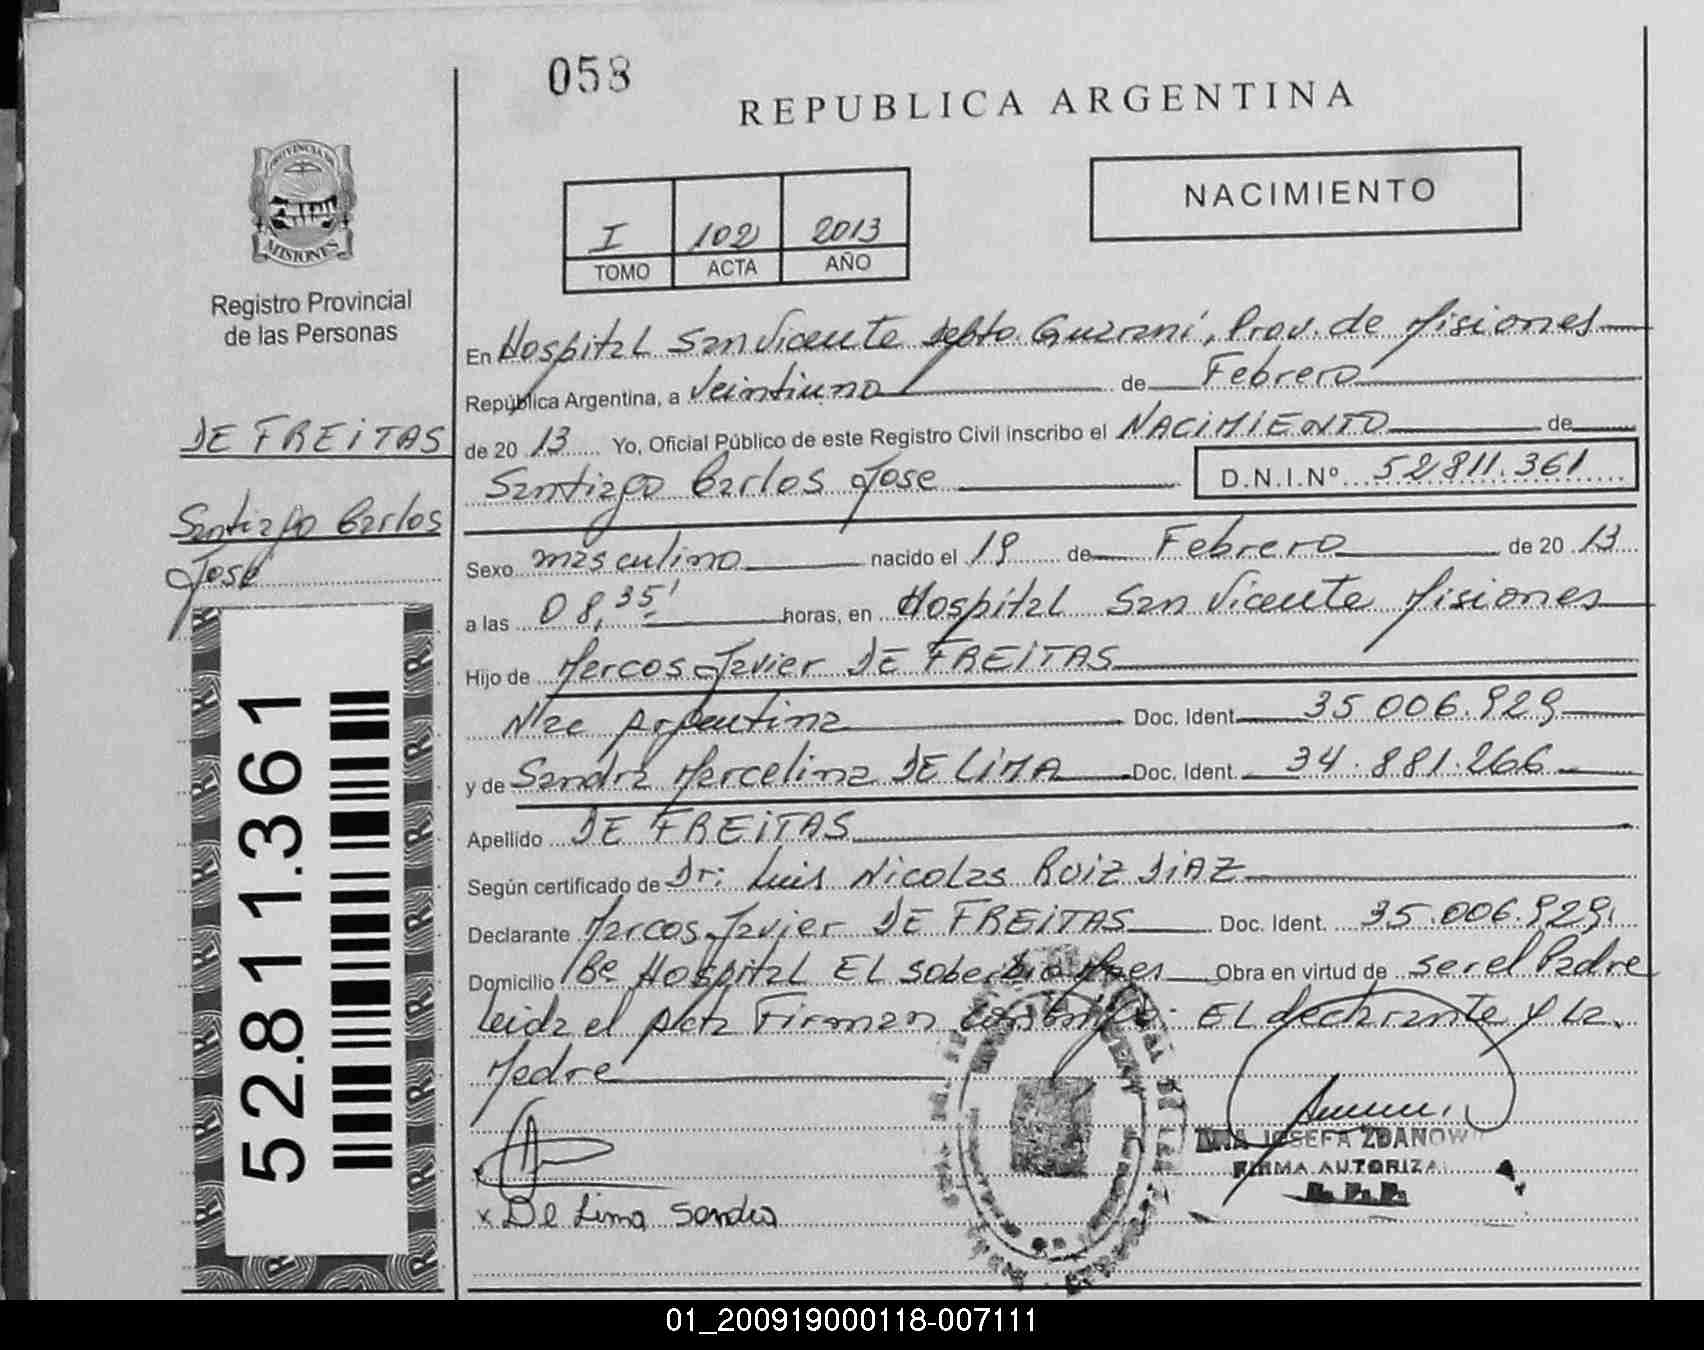 058
REPUBLICA ARGENTINA
PROVINCIA DE
MISIONES
Registro Provincial
de las Personas
NACIMIENTO
I 102 2013
TOMO ACTA AÑO
DE FREITAS
Santiago Carlos
Jose
52.811.361
En Hospital San Vicente Depto. Guarani, Prov. de Misiones
República Argentina, a Veintiuno de Febrero
de 20 13 Yo, Oficial Público de este Registro Civil inscribo el NACIMIENTO de
Santiago Carlos Jose D.N.I.Nº 52811.361
Sexo masculino nacido el 19 de Febrero de 20 13
a las 08,35' horas, en Hospital San Vicente Misiones
Hijo de Marcos Javier DE FREITAS
Nac Argentina Doc. Ident. 35.006.929
y de Sandra Marcelina DE LIMA Doc. Ident. 34.881.266
Apellido DE FREITAS
Según certificado de Dr: Luis Nicolas RUIZ DIAZ
Declarante Marcos Javier DE FREITAS Doc. Ident. 35.006.929
Domicilio Bº Hospital EL Soberbio Mnes Obra en virtud de ser el Padre
Leida el Acta Firman Conmigo: EL declarante y La
Madre
x De Lima Sandra
JOSEFA ZDANOW
FIRMA AUTORIZA
R.P.P.
01_200919000118-007111